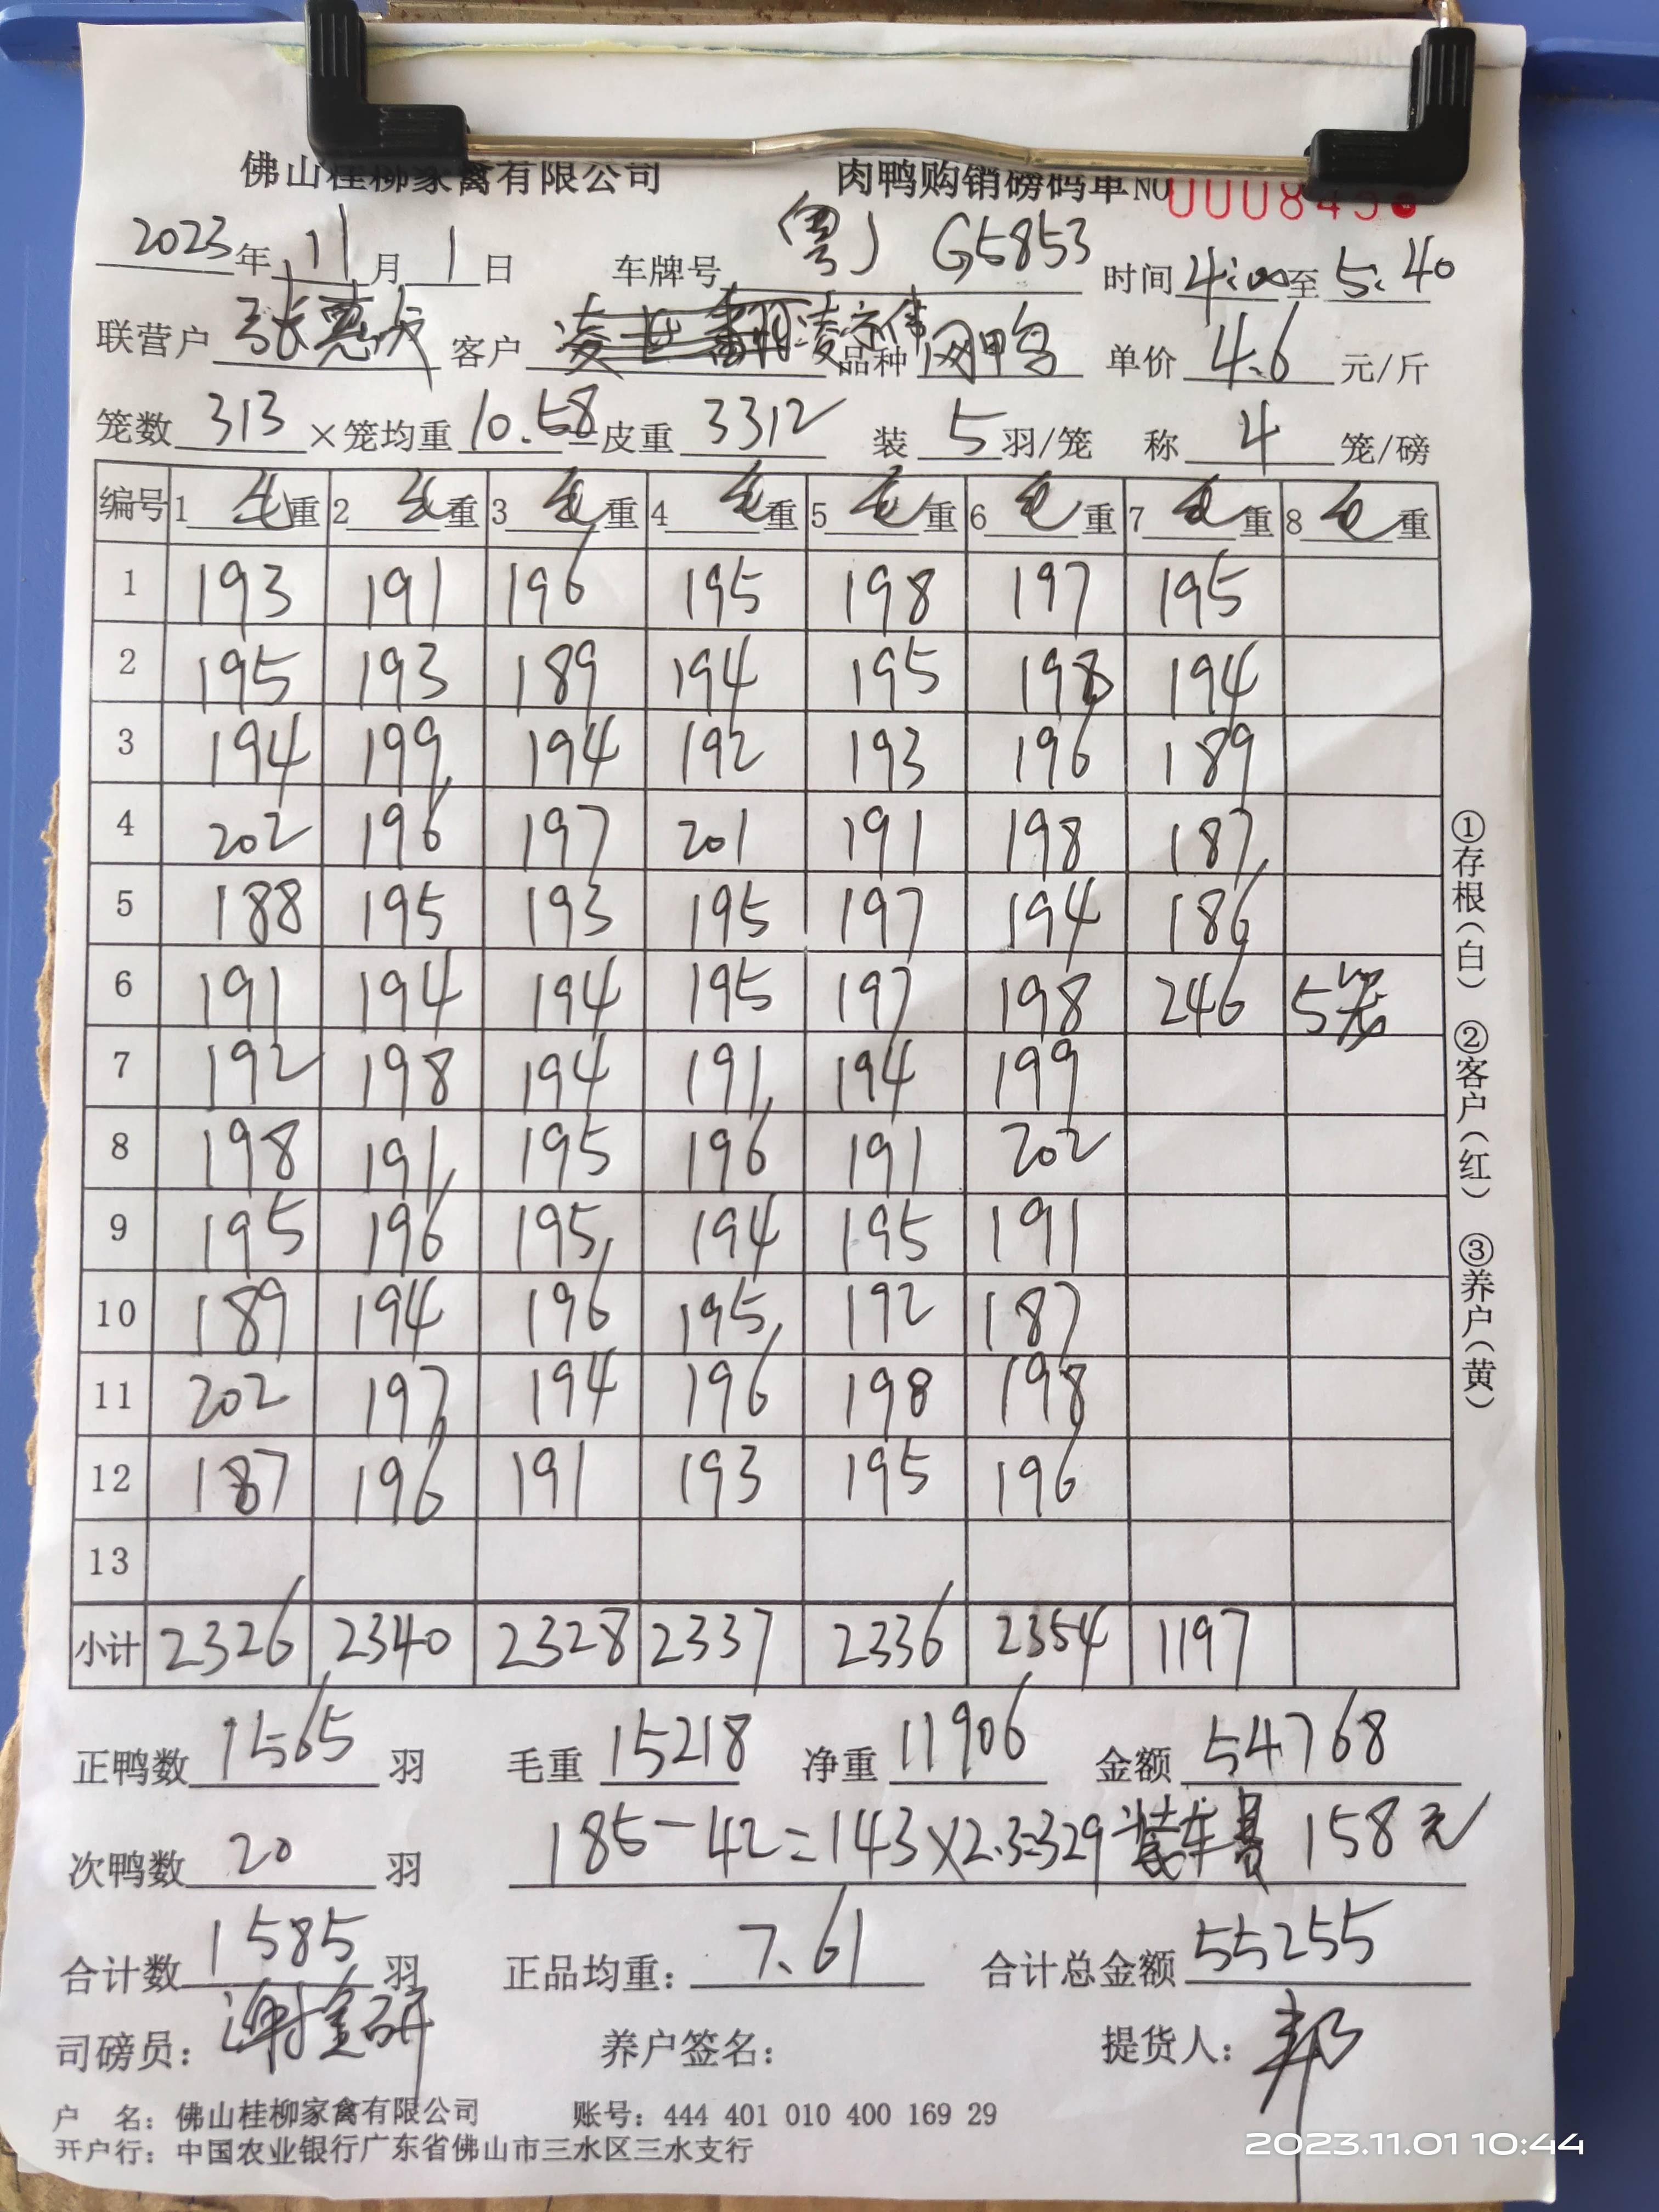 佛山桂柳家禽有限公司 肉鸭购销磅码单NO 000845
2023年11月1日 车牌号 粤J G5853 时间4:00至5:40
联营户 张惠 客户 凌宗伟 品种 鸭 单价 4.6 元/斤
笼数 313 ×笼均重 10.58 =皮重 3312 装 5 羽/笼 称 4 笼/磅
编号 1 毛重 2 毛重 3 毛重 4 毛重 5 毛重 6 毛重 7 毛重 8 毛重
1 193 191 196 195 198 197 195
2 195 193 189 194 195 198 194
3 194 199 194 192 193 196 189
4 202 196 197 201 191 198 187
5 188 195 193 195 197 194 186
6 191 194 194 195 197 198 246 5笼
7 192 198 194 191 194 199
8 198 191 195 196 191 202
9 195 196 195 194 195 191
10 189 194 196 195 192 187
11 202 197 194 196 198 198
12 187 196 191 193 195 196
13
小计 2326 2340 2328 2337 2336 2354 1197
正鸭数 1565 羽 毛重 15218 净重 11906 金额 54768
次鸭数 20 羽 185-42=143×2.3=329 装车费 158元
合计数 1585 羽 正品均重: 7.61 合计总金额 55255
司磅员: 谢金研 养户签名: 提货人: 邦
户 名: 佛山桂柳家禽有限公司 账号: 444 401 010 400 169 29
开户行: 中国农业银行广东省佛山市三水区三水支行
①存根(白) ②客户(红) ③养户(黄)
2023.11.01 10:44